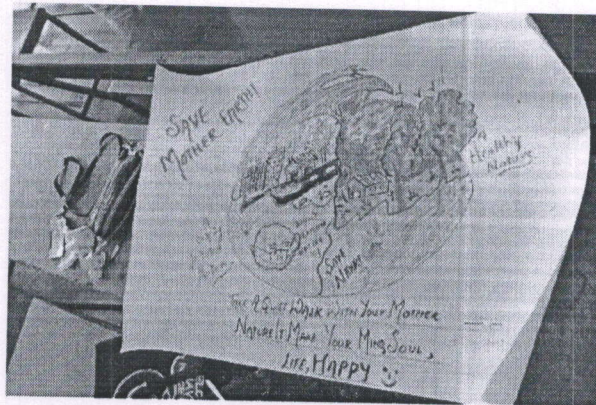 SAVE
MOTHER EARTH!
A
Healthy
Nature
Save
Nature
TAKE A QUIET WALK WITH YOUR MOTHER
NATURE IT MAKE YOUR MIND, SOUL,
LIFE, HAPPY